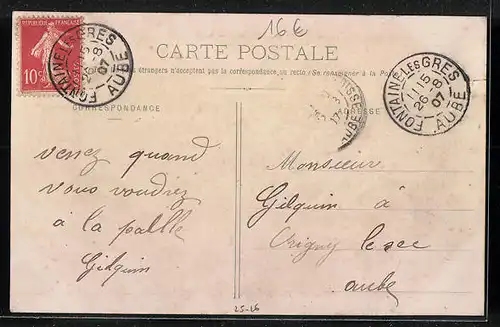 16€
RÉPUBLIQUE FRANÇAISE
10c
FONTAINE LES GRES
26-8
07
AUBE
CARTE POSTALE
étrangers n'acceptent pas la correspondance au recto (Se renseigner à la Poste)
FONTAINE LES GRES
11 15
26-8
07
AUBE
AUBE
CORRESPONDANCE
ADRESSE
venez quand
vous voudrez
à la
Gilquin
Monsieur
Gilquin à
Origny le sec
aube
25-26